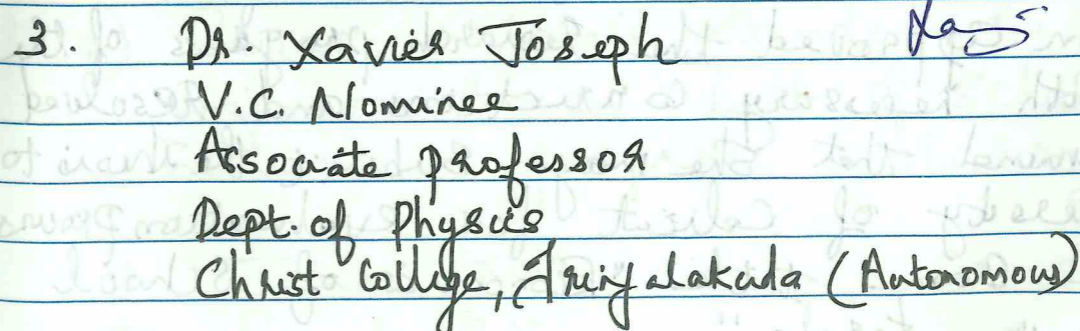 3. Dr. Xavier Joseph
V.C. Nominee
Associate professor
Dept. of Physics
Christ College, Irinjalakuda (Autonomous)